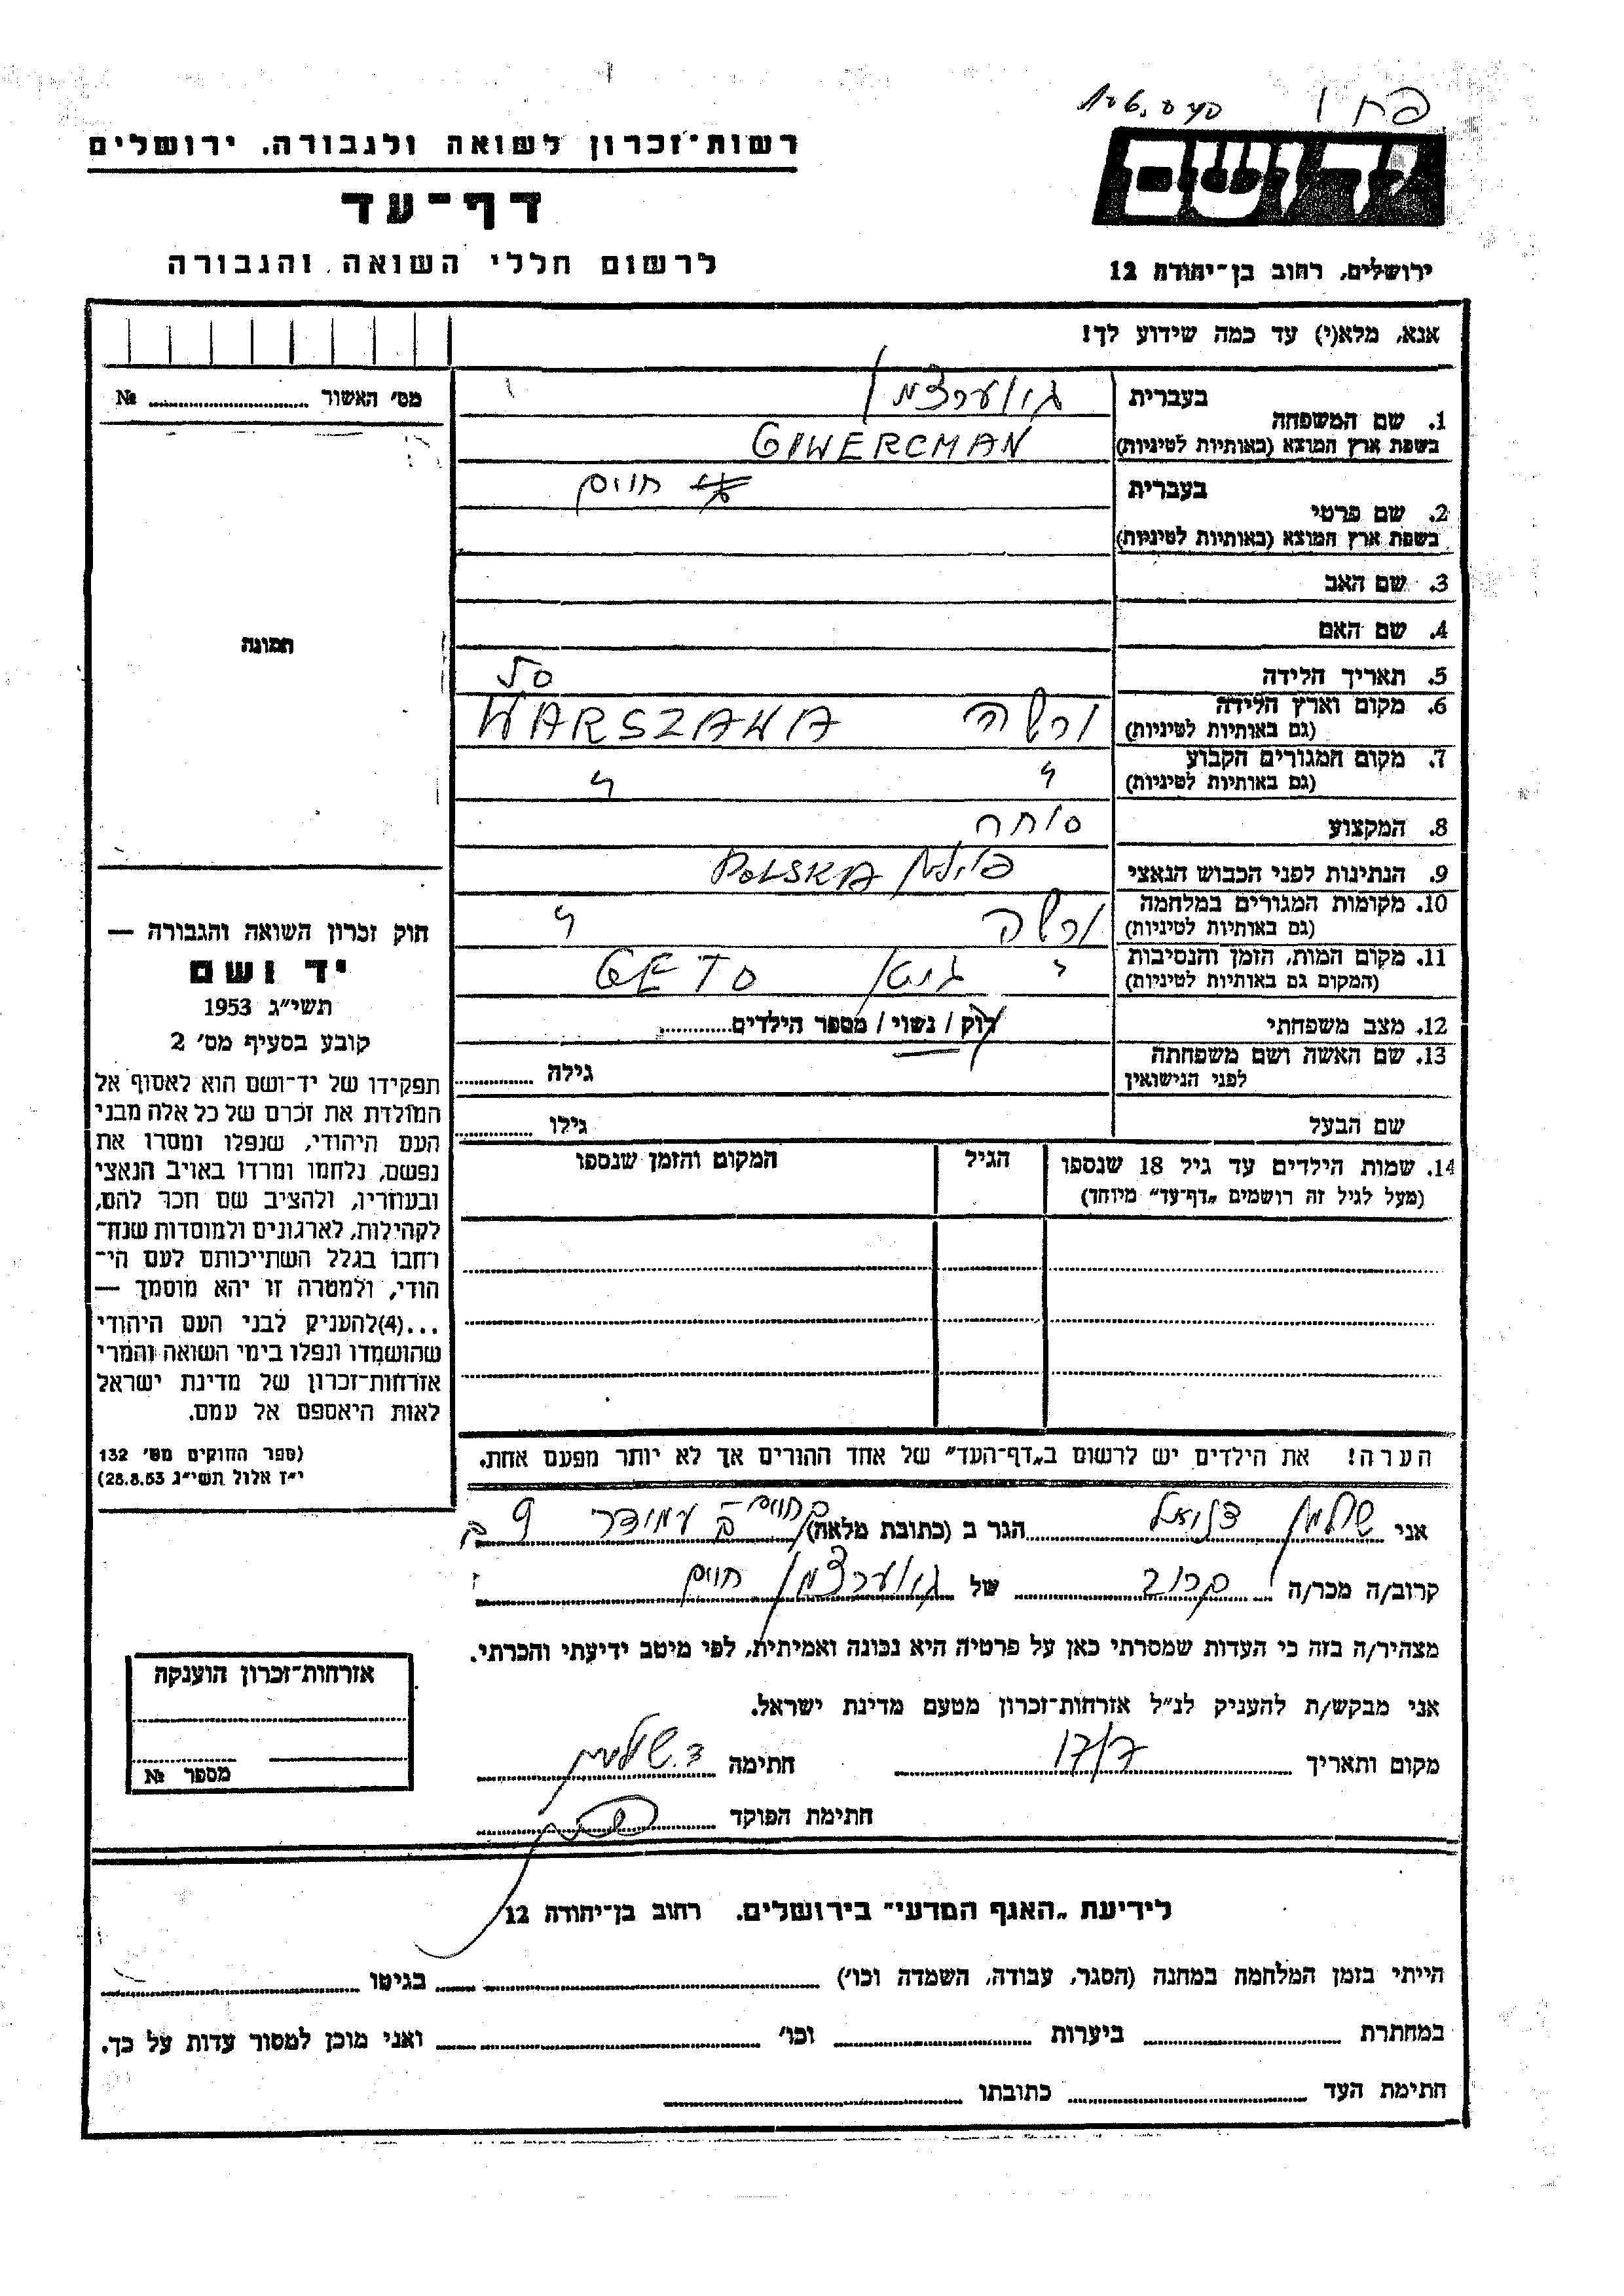 רשות־זכרון לשואה ולגבורה, ירושלים
דף־עד
לרשום חללי השואה והגבורה
יד ושם
ירושלים, רחוב בן־יהודה 12
אנא, מלא(י) עד כמה שידוע לך!
מס׳ האשור ........ №
תמונה
1. שם המשפחה
בעברית גיווערצמן
בשפת ארץ המוצא (באותיות לטיניות) GIWERCMAN
2. שם פרטי
בעברית חיים
בשפת ארץ המוצא (באותיות לטיניות)
3. שם האב
4. שם האם
5. תאריך הלידה 50
6. מקום וארץ הלידה ורשה WARSZAWA
(גם באותיות לטיניות)
7. מקום המגורים הקבוע " "
(גם באותיות לטיניות)
8. המקצוע סוחר
9. הנתינות לפני הכבוש הנאצי פולין POLSKA
10. מקומות המגורים במלחמה ורשה "
(גם באותיות לטיניות)
11. מקום המות, הזמן והנסיבות גיטו GETO
(המקום גם באותיות לטיניות)
12. מצב משפחתי רוק / נשוי / מספר הילדים........
13. שם האשה ושם משפחתה גילה ........
לפני הנישואין
שם הבעל גילו ........
14. שמות הילדים עד גיל 18 שנספו הגיל המקום והזמן שנספו
(מעל לגיל זה רושמים „דף־עד” מיוחד)
הערה! את הילדים יש לרשום ב„דף־העד” של אחד ההורים אך לא יותר מפעם אחת.
חוק זכרון השואה והגבורה —
יד ושם
תשי״ג 1953
קובע בסעיף מס׳ 2
תפקידו של יד־ושם הוא לאסוף אל
המולדת את זכרם של כל אלה מבני
העם היהודי, שנפלו ומסרו את
נפשם, נלחמו ומרדו באויב הנאצי
ובעוזריו, ולהציב שם וזכר להם,
לקהילות, לארגונים ולמוסדות שנח־
רבו בגלל השתייכותם לעם הי־
הודי, ולמטרה זו יהא מוסמך —
...(4)להעניק לבני העם היהודי
שהושמדו ונפלו בימי השואה והמרי
אזרחות־זכרון של מדינת ישראל
לאות היאספם אל עמם.
(ספר החוקים מס׳ 132
י״ז אלול תשי״ג 28.8.53)
אני שולמן דניאל הגר ב (כתובת מלאה) עמידר 9
קרוב/ה מכר/ה קרוב של גיווערצמן חיים
מצהיר/ה בזה כי העדות שמסרתי כאן על פרטיה היא נכונה ואמיתית, לפי מיטב ידיעתי והכרתי.
אני מבקש/ת להעניק לנ״ל אזרחות־זכרון מטעם מדינת ישראל.
מקום ותאריך חתימה ד. שולמן
חתימת הפוקד
אזרחות־זכרון הוענקה
מספר №
לידיעת „האגף המדעי” בירושלים. רחוב בן־יהודה 12
הייתי בזמן המלחמה במחנה (הסגר, עבודה, השמדה וכו׳) ........ בגיטו ........
במחתרת ........ ביערות ........ וכו׳ ........ ואני מוכן למסור עדות על כך.
חתימת העד ........ כתובתו ........